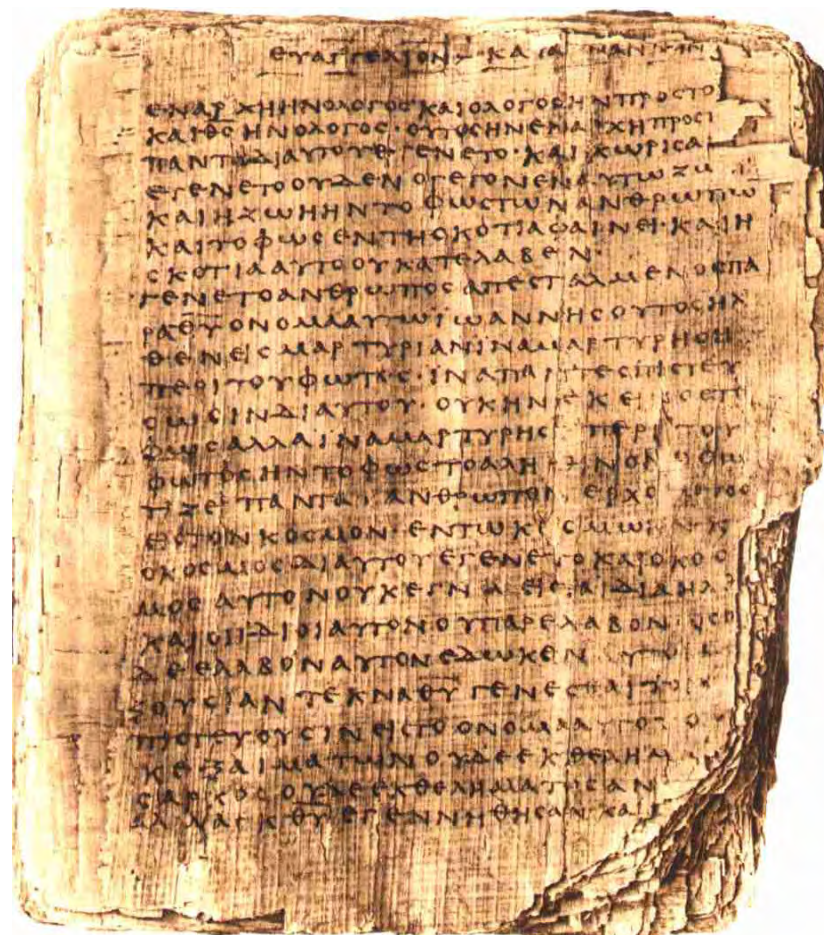 ΕΥΑΓΓΕΛΙΟΝ ΚΑΤΑ
ΕΝΑΡΧΗΗΝΟΛΟΓΟϹΚΑΙΟΛΟΓΟϹΗΝΠΡΟϹΤΟ
ΚΑΙΘ̅Ϲ̅ΗΝΟΛΟΓΟϹ·ΟΥΤΟϹΗΝΕΝΑΡΧΗΠΡΟϹ
ΠΑΝΤΑΔΙΑΥΤΟΥΕΓΕΝΕΤΟ·ΚΑΙΧΩΡΙϹΑ
ΕΓΕΝΕΤΟΟΥΔΕΝΟΓΕΓΟΝΕΝΑΥΤΩΖΩ
ΚΑΙΗΖΩΗΗΝΤΟΦΩϹΤΩΝΑΝΘΡΩΠΩ
ΚΑΙΤΟΦΩϹΕΝΤΗϹΚΟΤΙΑΦΑΙΝΕΙ·ΚΑΙΗ
ϹΚΟΤΙΑΑΥΤΟΟΥΚΑΤΕΛΑΒΕΝ·
ΓΕΝΕΤΟΑΝΘΡΩΠΟϹΑΠΕϹΤΑΛΜΕΝΟϹΠΑ
ΡΑΘ̅Υ̅ΟΝΟΜΑΑΥΤΩΙΩΑΝΝΗϹΟΥΤΟϹΗΛ
ΘΕΝΕΙϹΜΑΡΤΥΡΙΑΝΙΝΑΜΑΡΤΥΡΗϹΗ
ΠΕΡΙΤΟΥΦΩΤΟϹ·ΙΝΑΠΑΝΤΕϹΠΙϹΤΕΥ
ϹΩϹΙΝΔΙΑΥΤΟΥ·ΟΥΚΗΝΕΚΕΙΝΟϹΤΟ
ΦΩϹΑΛΛΑΙΝΑΜΑΡΤΥΡΗϹΗΠΕΡΙΤΟΥ
ΦΩΤΟϹΗΝΤΟΦΩϹΤΟΑΛΗΘΙΝΟΝΟΦΩ
ΤΙΖΕΙΠΑΝΤΑΑΝΘΡΩΠΟΝΕΡΧΟΜΕΝΟ
ΕΙϹΤΟΝΚΟϹΜΟΝ·ΕΝΤΩΚΟϹΜΩΗΝΚ
ΟΚΟϹΜΟϹΔΙΑΥΤΟΥΕΓΕΝΕΤΟΚΑΙΟΚΟϹ
ΜΟϹΑΥΤΟΝΟΥΚΕΓΝΩΕΙϹΤΑΙΔΙΑΗΛΘ
ΚΑΙΟΙΙΔΙΟΙΑΥΤΟΝΟΥΠΑΡΕΛΑΒΟΝ·ΟϹΟ
ΔΕΕΛΑΒΟΝΑΥΤΟΝΕΔΩΚΕΝΑΥΤΟΙ
ΞΟΥϹΙΑΝΤΕΚΝΑΘ̅Υ̅ΓΕΝΕϹΘΑΙΤΟΙ
ΠΙϹΤΕΥΟΥϹΙΝΕΙϹΤΟΟΝΟΜΑΑΥΤΟΥΟ
ΚΕΞΑΙΜΑΤΩΝΟΥΔΕΕΚΘΕΛΗΜ
ϹΑΡΚΟϹΟΥΔΕΕΚΘΕΛΗΜΑΤΟϹΑΝ
ΑΛΛΑΕΚΘ̅Υ̅ΕΓΕΝΝΗΘΗϹΑΝΚΑΙ